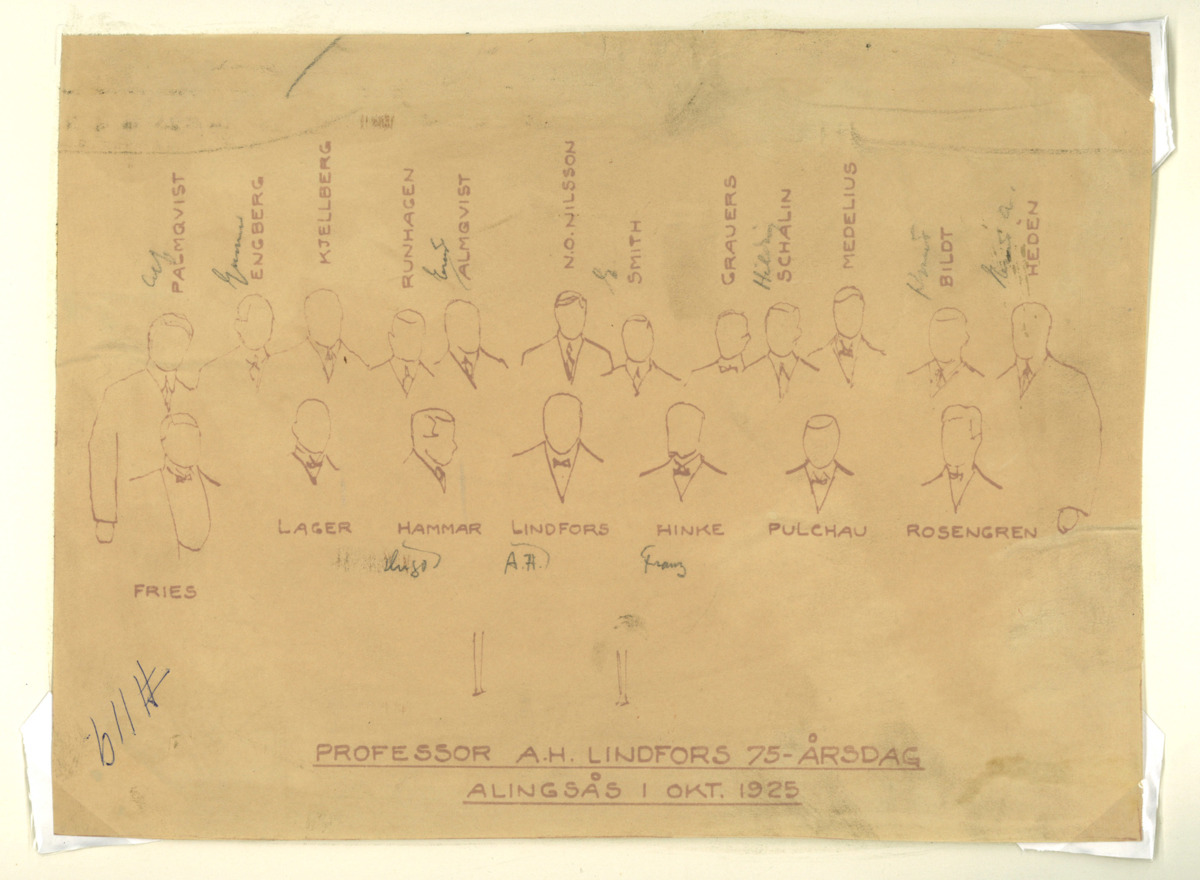 PALMQVIST
Gunnar ENGBERG
KJELLBERG
RUNHAGEN
Ernst ALMQVIST
N.O. NILSSON
SMITH
GRAUERS
Hilding SCHALIN
MEDELIUS
Knut BILDT
HEDÉN
LAGER HAMMAR LINDFORS HINKE PULCHAU ROSENGREN
Hugo A.H. Franz
FRIES
A 119
PROFESSOR A.H. LINDFORS 75-ÅRSDAG
ALINGSÅS 1 OKT. 1925